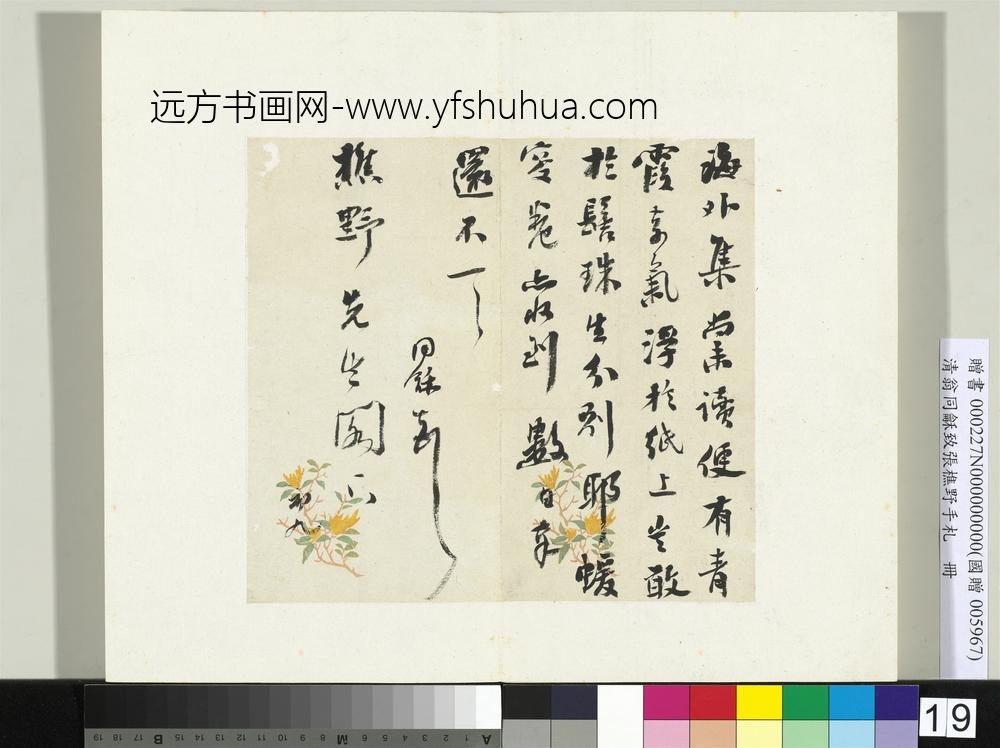 远方书画网-www.yfshuhua.com
海外集尚未讀便有青
霞奇氣浮於紙上豈敢
於髻珠生分別耶蝯
叟卷亦收到數日奉
還不一一
同龢頓首
樵野先生閣下
初九
贈書 000227N000000000(國贈 005967)
清翁同龢致張樵野手札 冊
19 18 17 16 15 14 13 12 11 10 9 8 7 6 5 4 3 2 1
B M A
19